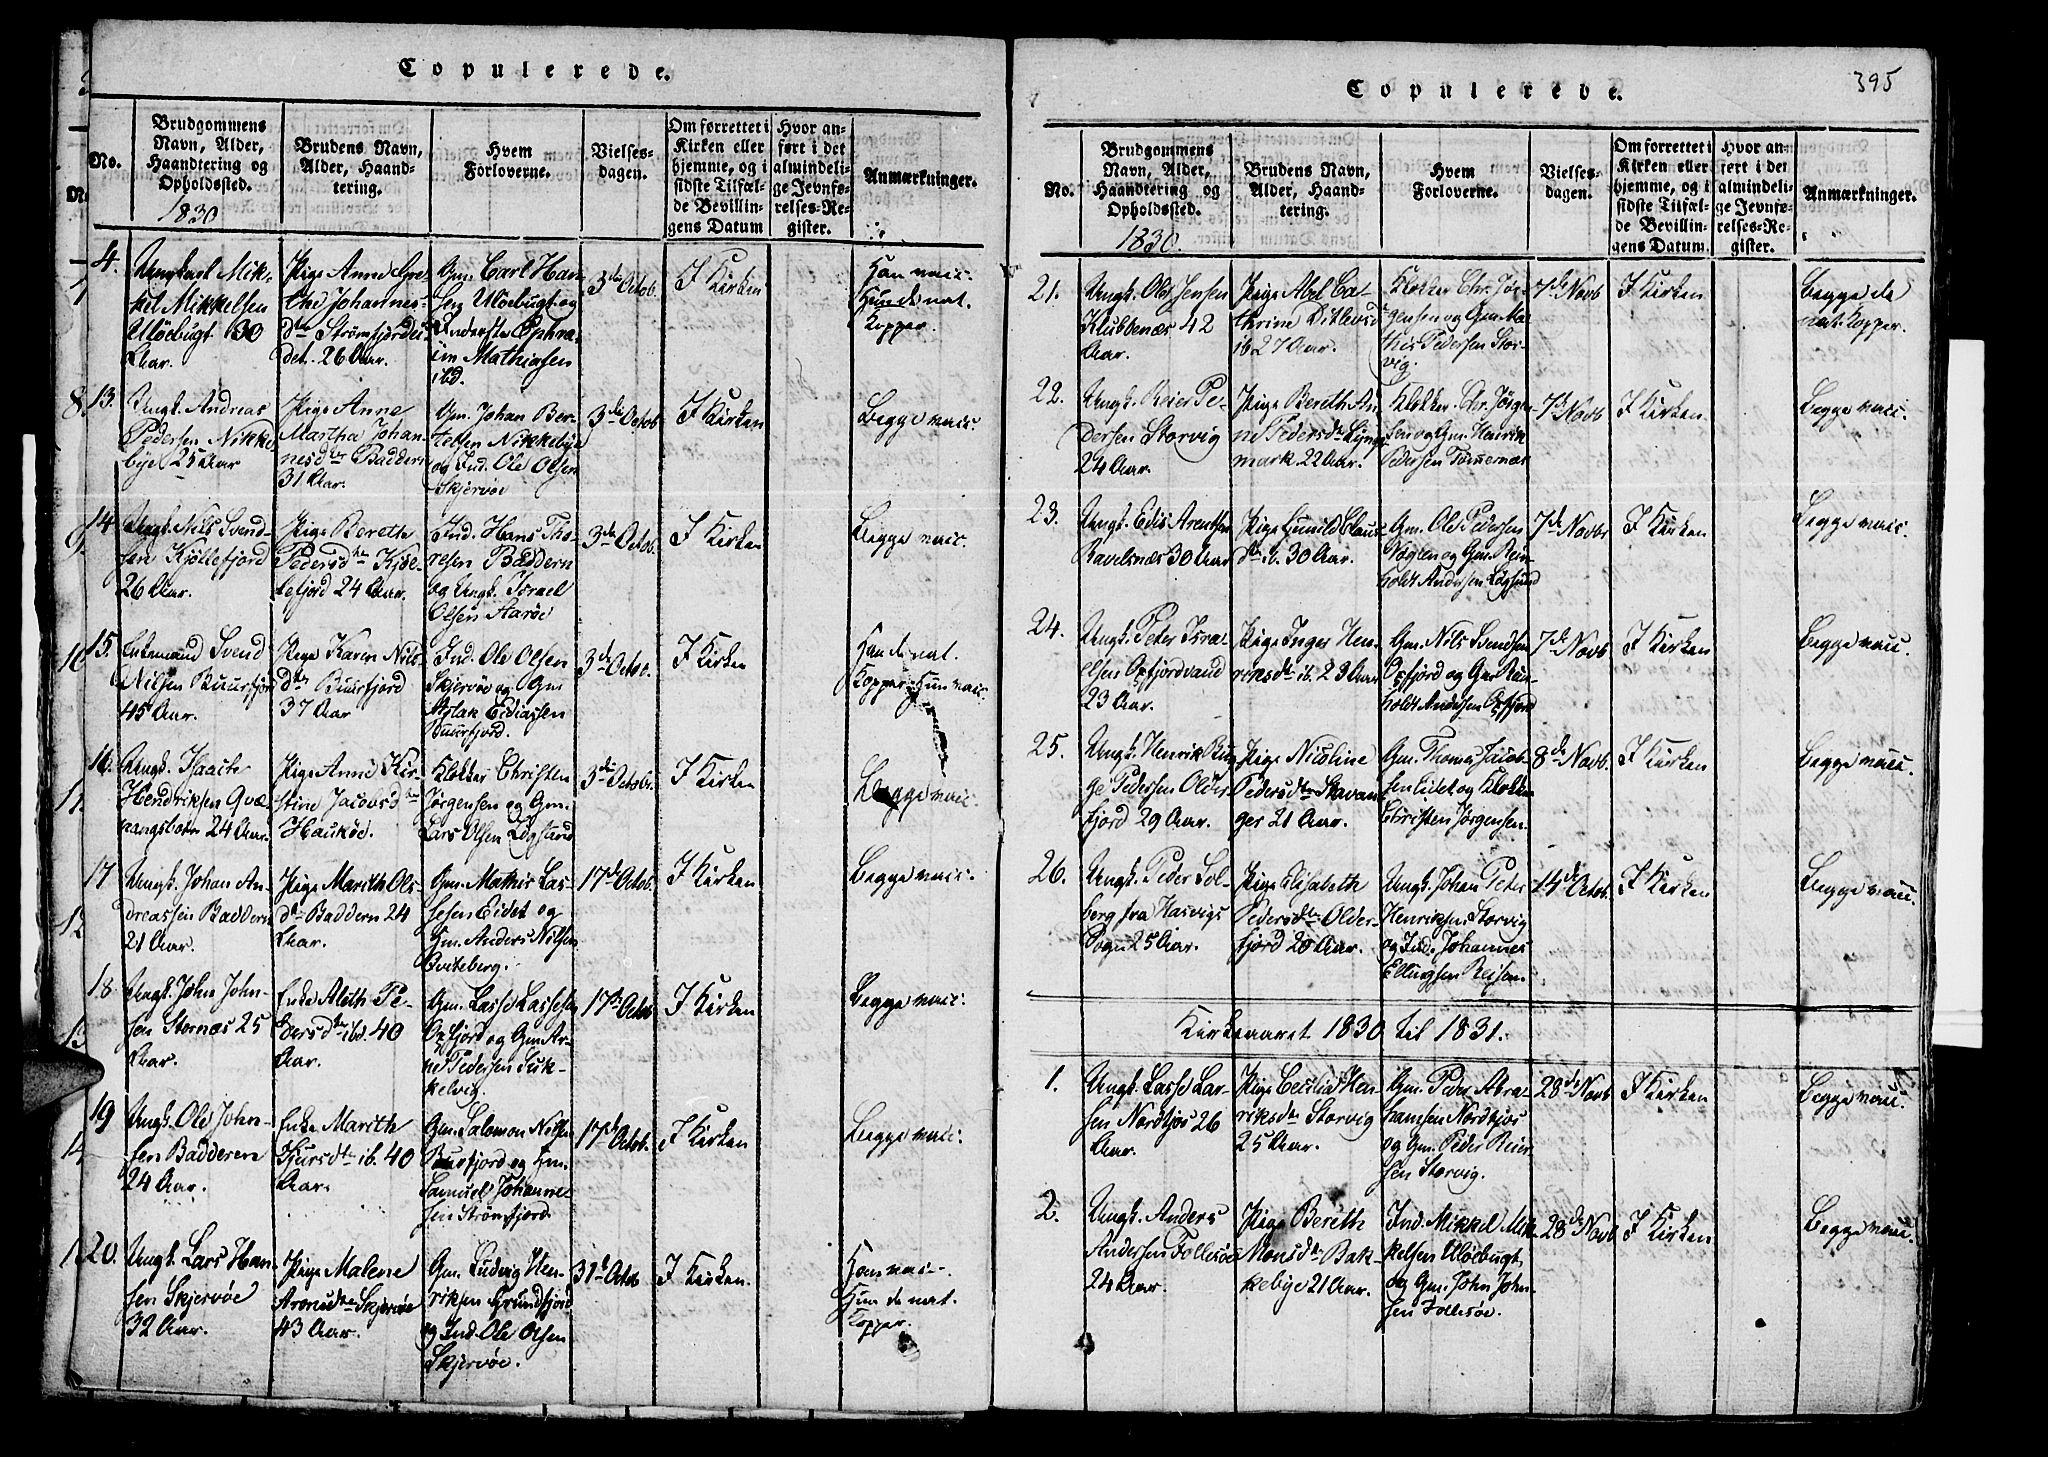 Copulerede.
No.
Brudgommens
Navn, Alder,
Haandtering og
Opholdssted.
1830
Brudens Navn,
Alder, Haand-
tering.
Hvem
Forloverne.
Vielses-
dagen.
Om forrettet i
Kirken eller
hjemme, og i
sidste Tilfæl-
de Bevillin-
gens Datum
Hvor an-
ført i det
almindeli-
ge Jevnfø-
relses-Re-
gister.
Anmærkninger.
4.
Ungkarl Mik-
kel Mikkelsen
Uløebugt 30
Aar.
Pige Anne Gre-
the Johannes-
dtr Strømfjordei-
det. 26 Aar.
Gm. Carl Han-
sen Uløebugt og
Inderste Ephra-
im Mathiasen
ibd.
3de Octob.
I Kirken
Han vacc.
Hun de nat.
Kopper.
13.
Ungk. Andreas
Pedersen Nikke-
bye 25 Aar
Pige Anne
Martha Johan-
nesdtr Baddern
31 Aar.
Gm. Johan Ber-
telsen Nikkebye
og Ind. Ole Olsen
Skjervøe
3de Octob.
I Kirken
Begge vacc.
14.
Ungk. Nils Svend-
sen Kjøllefjord
26 Aar.
Pige Berethe
Pedersdtr Kjøl-
lefjord 24 Aar.
Ind. Hans Tho-
resen Baddern
og Ungk. Israel
Olsen Aarøe
3de Octob.
I Kirken
Begge vacc.
15.
Enkemand Svend
Nilsen Buurfjord
45 Aar.
Pige Karen Nils-
dtr Buurfjord
37 Aar
Ind. Ole Olsen
Skjervøe og Gm
Aslak Ediassen
Buurfjord.
3de Octob.
I Kirken
Han de nat.
Kopper, Hun vacc.
16.
Ungk. Isaach
Hendriksen Qvæ-
nangsbotn 24 Aar.
Pige Anne Kir-
stine Jacobsdtr
Haukøe.
Klokker Christen
Jørgensen og Gm.
Lars Olsen Løgsund
3de Octobr.
I Kirken
Begge vacc.
17
Ungk. Johan An-
dreassen Baddern
21 Aar.
Pige Marith Ols-
dtr Baddern 24
Aar.
Gm. Mathis Las-
sesen Eidet og
Gm. Anders Nilsen
Qviteberg.
17de Octob.
I Kirken
Begge vacc.
18.
Ungk. John John-
sen Stornæs 25
Aar.
Enke Aleth Pe-
dersdtr ibd. 40
Aar.
Gm. Lasse Lassesen
Oxfjord og Gm Ar-
ne Pedersen Suk-
kelvig.
17de Octob
I Kirken
Begge vacc.
19
Ungk. Ole John-
sen Badderen
24 Aar.
Enke Marith
Sjursdtr ib. 40
Aar.
Gm. Salomon Nilsen
Buurfjord og Gm.
Samuel Johanne-
sen Strømfjord.
17de Octob.
I Kirken
Begge vacc.
20.
Ungk. Lars Han-
sen Skjervøe
32 Aar.
Pige Malene
Aronsdtr Skjervøe
43 Aar.
Gm. Ludvig Hen-
riksen Grundfjord
og Ind. Ole Olsen
Skjervøe.
31te Octob
I Kirken.
Han vacc.
Hun de nat.
Kopper.
Copulerede.
395
No.
Brudgommens
Navn, Alder,
Haandtering og
Opholdssted.
1830.
Brudens Navn,
Alder, Haand-
tering.
Hvem
Forloverne.
Vielses-
dagen.
Om forrettet i
Kirken eller
hjemme, og i
sidste Tilfæl-
de Bevillin-
gens Datum.
Hvor an-
ført i det
almindeli-
ge Jevnfø-
relses-Re-
gister.
Anmærkninger.
21.
Ungk. Ole Jensen
Klubbenæs 42
Aar.
Pige Abel Ca-
thrine Ditlevsd
ib 27 Aar.
Klokker Chr. Jør-
gensen og Gm. Ma-
this Pedersen Stor-
vig.
7de Novb
I Kirken
Begge de
nat. Kopper.
22.
Ungk. Reier Pe-
dersen Storvig
24 Aar.
Pige Bereth An-
ne Pedersdtr Lyng-
mark. 22 Aar.
Klokker Chr. Jørgen-
sen og Gm. Henrik
Pedersen
7de Novb
I Kirken
Begge vacc.
23.
Ungk. Edis Arentsen
Ravelsnæs 30 Aar
Pige Gunild Claus-
dtr ib. 30 Aar.
Gm. Ole Pedersen
Noglen og Gm. Rein-
holdt Andersen Løgsund
7de Novbr
I Kirken
Begge vacc.
24.
Ungk. Peter Isra-
elsen Oxfjordvand
23 Aar.
Pige Inger Hen-
riksdtr ib. 23 Aar
Gm. Nils Svendsen
Oxfjord og Gm Rein-
holdt Andersen Oxfjord
7de Novb
I Kirken
Begge vacc.
25.
Ungk. Henrik Bir-
ge Pedersen Older-
fjord 29 Aar.
Pige Nicoline
Pedersdtr Stavan-
ger 21 Aar.
Gm. Thomas Jacob-
sen Eidet og Klokker
Christen Jørgensen.
8de Novb.
I Kirken
Begge vacc.
26.
Ungk. Peder Sol-
berg fra Hasvigs
Sogn 25 Aar.
Pige Elisabeth
Pedersdtr Older-
fjord 20 Aar.
Ungk. Johan Peter
Henriksen Storvig
og Ind. Johannes
Ellingsen Reisen.
14de Octob.
I Kirken
Begge vacc.
Kirkeaaret 1830 til 1831.
1.
Ungk. Lasse Lar-
sen Nordkjos 26
Aar.
Pige Cecilia Hen-
riksdtr Storvig
25 Aar.
Gm. Peder Abra-
hamsen Nordkjos
og Gm. Peder Reier-
sen Storvig.
28de Novb
I Kirken
Begge vacc.
2.
Ungk. Anders
Andersen Follesøe
24 Aar.
Pige Bereth
Monsdtr Bak-
kebye 21 Aar.
Ind. Mikkel Mik-
kelsen Uløebugt
og Gm. John John-
sen Follesøe.
28de Novb
I Kirken
Begge vacc.